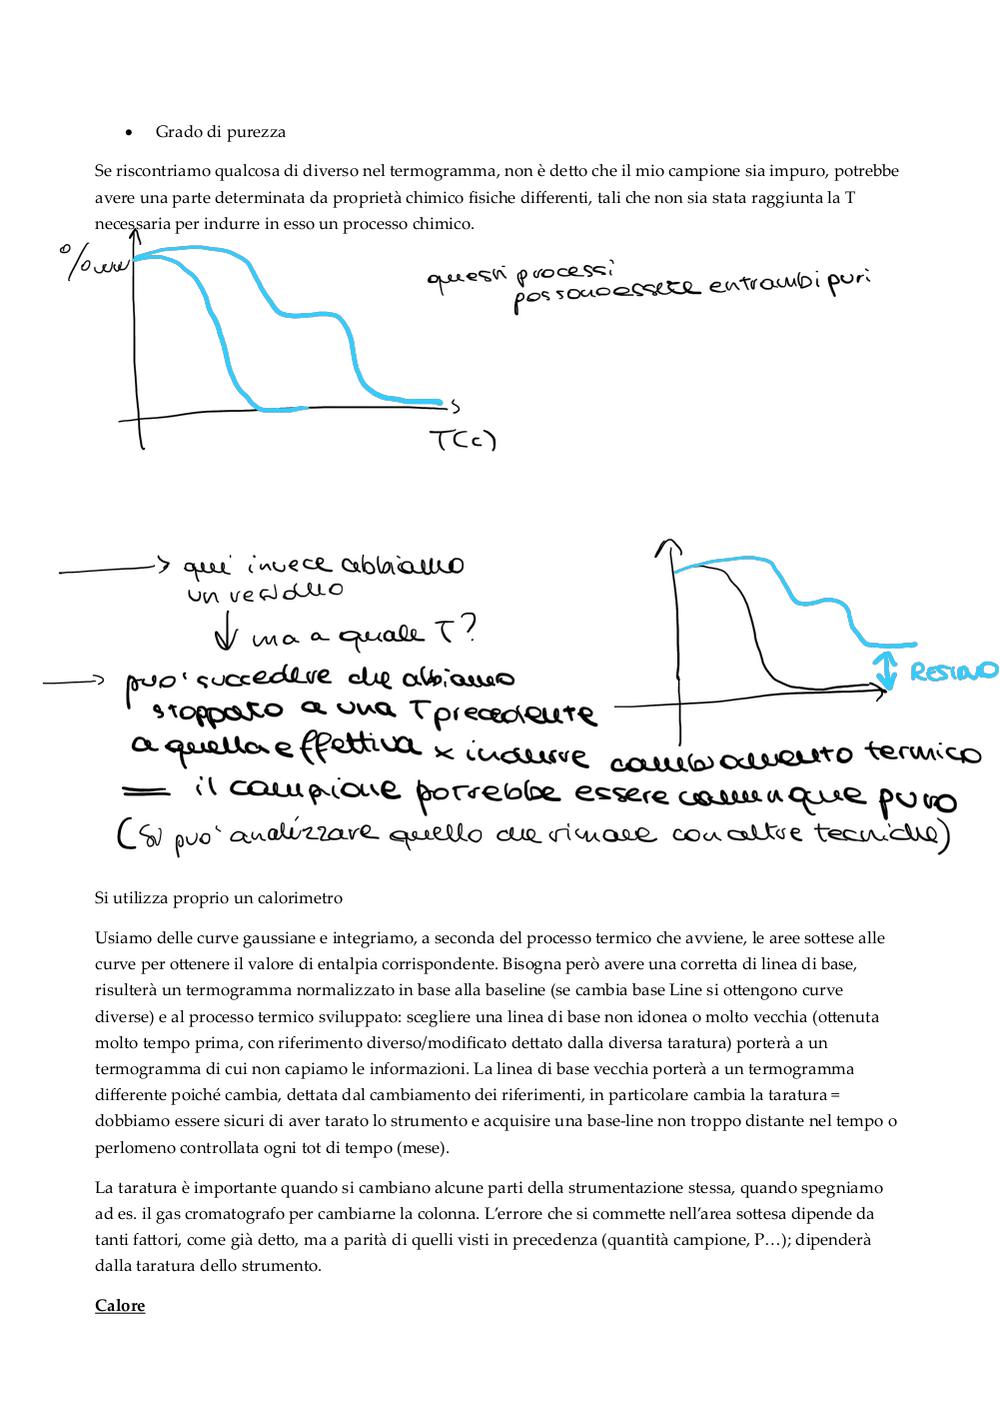 • Grado di purezza
Se riscontriamo qualcosa di diverso nel termogramma, non è detto che il mio campione sia impuro, potrebbe
avere una parte determinata da proprietà chimico fisiche differenti, tali che non sia stata raggiunta la T
necessaria per indurre in esso un processo chimico.
%
questi processi
possono essere entrambi puri
T(c)
qui invece abbiamo
un residuo
ma a quale T?
può succedere che abbiamo
RESIDUO
stoppato a una T precedente
a quella effettiva x indurre cambiamento termico
= il campione potrebbe essere comunque puro
(Si può analizzare quello che rimane con altre tecniche)
Si utilizza proprio un calorimetro
Usiamo delle curve gaussiane e integriamo, a seconda del processo termico che avviene, le aree sottese alle
curve per ottenere il valore di entalpia corrispondente. Bisogna però avere una corretta di linea di base,
risulterà un termogramma normalizzato in base alla baseline (se cambia base Line si ottengono curve
diverse) e al processo termico sviluppato: scegliere una linea di base non idonea o molto vecchia (ottenuta
molto tempo prima, con riferimento diverso/modificato dettato dalla diversa taratura) porterà a un
termogramma di cui non capiamo le informazioni. La linea di base vecchia porterà a un termogramma
differente poiché cambia, dettata dal cambiamento dei riferimenti, in particolare cambia la taratura =
dobbiamo essere sicuri di aver tarato lo strumento e acquisire una base-line non troppo distante nel tempo o
perlomeno controllata ogni tot di tempo (mese).
La taratura è importante quando si cambiano alcune parti della strumentazione stessa, quando spegniamo
ad es. il gas cromatografo per cambiarne la colonna. L'errore che si commette nell'area sottesa dipende da
tanti fattori, come già detto, ma a parità di quelli visti in precedenza (quantità campione, P…); dipenderà
dalla taratura dello strumento.
Calore